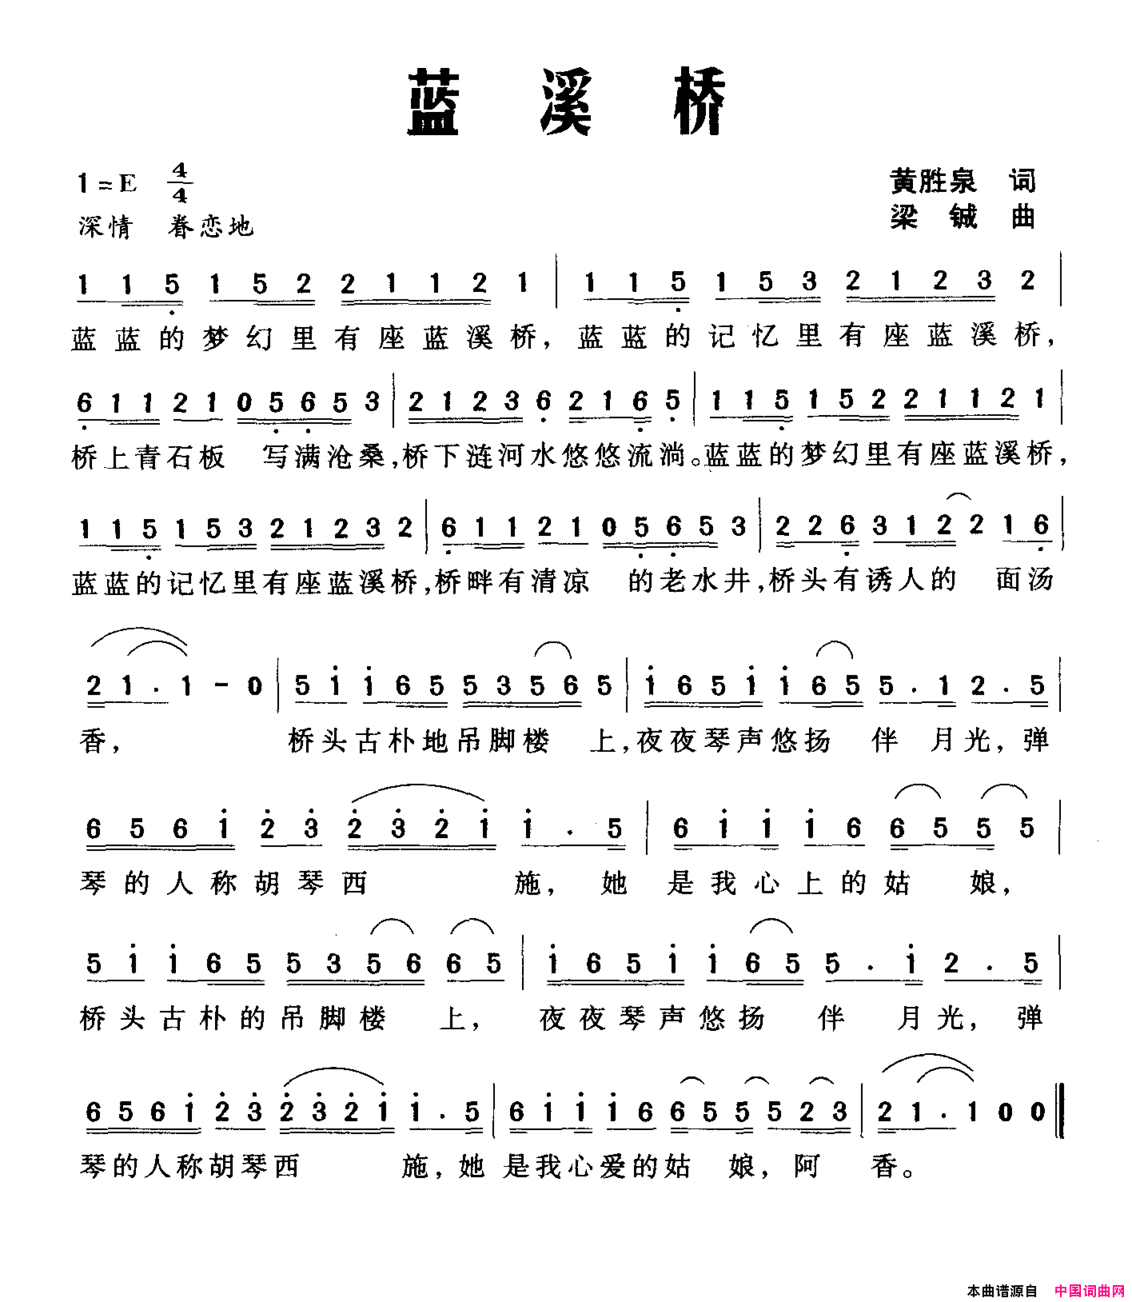 蓝溪桥
1=E 4/4
黄胜泉 词
深情 眷恋地
梁 铖 曲
1 1 5 1 5 2 2 1 1 2 1 | 1 1 5 1 5 3 2 1 2 3 2 |
蓝蓝的梦幻里有座蓝溪桥，蓝蓝的记忆里有座蓝溪桥，
6 1 1 2 1 0 5 6 5 3 | 2 1 2 3 6 2 1 6 5 | 1 1 5 1 5 2 2 1 1 2 1 |
桥上青石板 写满沧桑，桥下涟河水悠悠流淌。蓝蓝的梦幻里有座蓝溪桥，
1 1 5 1 5 3 2 1 2 3 2 | 6 1 1 2 1 0 5 6 5 3 | 2 2 6 3 1 2 2 1 6 |
蓝蓝的记忆里有座蓝溪桥，桥畔有清凉 的老水井，桥头有诱人的 面汤
2 1 . 1 - 0 | 5 1 1 6 5 5 3 5 6 5 | 1 6 5 1 1 6 5 5 . 1 2 . 5 |
香， 桥头古朴地吊脚楼 上，夜夜琴声悠扬 伴 月光，弹
6 5 6 1 2 3 2 3 2 1 1 . 5 | 6 1 1 1 6 6 5 5 5 |
琴的人称胡琴西 施，她 是我心上的姑 娘，
5 1 1 6 5 5 3 5 6 6 5 | 1 6 5 1 1 6 5 5 . 1 2 . 5 |
桥头古朴的吊脚楼 上， 夜夜琴声悠扬 伴 月光，弹
6 5 6 1 2 3 2 3 2 1 1 . 5 | 6 1 1 1 6 6 5 5 5 2 3 | 2 1 . 1 0 0 ‖
琴的人称胡琴西 施，她 是我心爱的姑 娘，阿 香。
本曲谱源自 中国词曲网